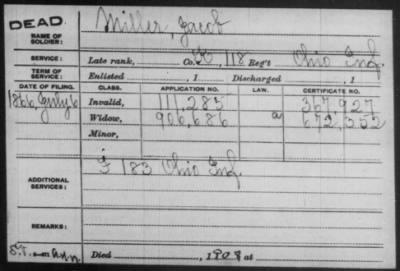 DEAD.
NAME OF SOLDIER: Miller, Jacob
SERVICE: Late rank, Co. 118 Reg't Ohio Inf.
TERM OF SERVICE: Enlisted , 1 Discharged , 1
DATE OF FILING. CLASS. APPLICATION NO. LAW. CERTIFICATE NO.
1866, July 6 Invalid, 111,285 367,927
Widow, 906,686 672,352
Minor,
ADDITIONAL SERVICES: F 183 Ohio Inf.
REMARKS:
Died , 190 at